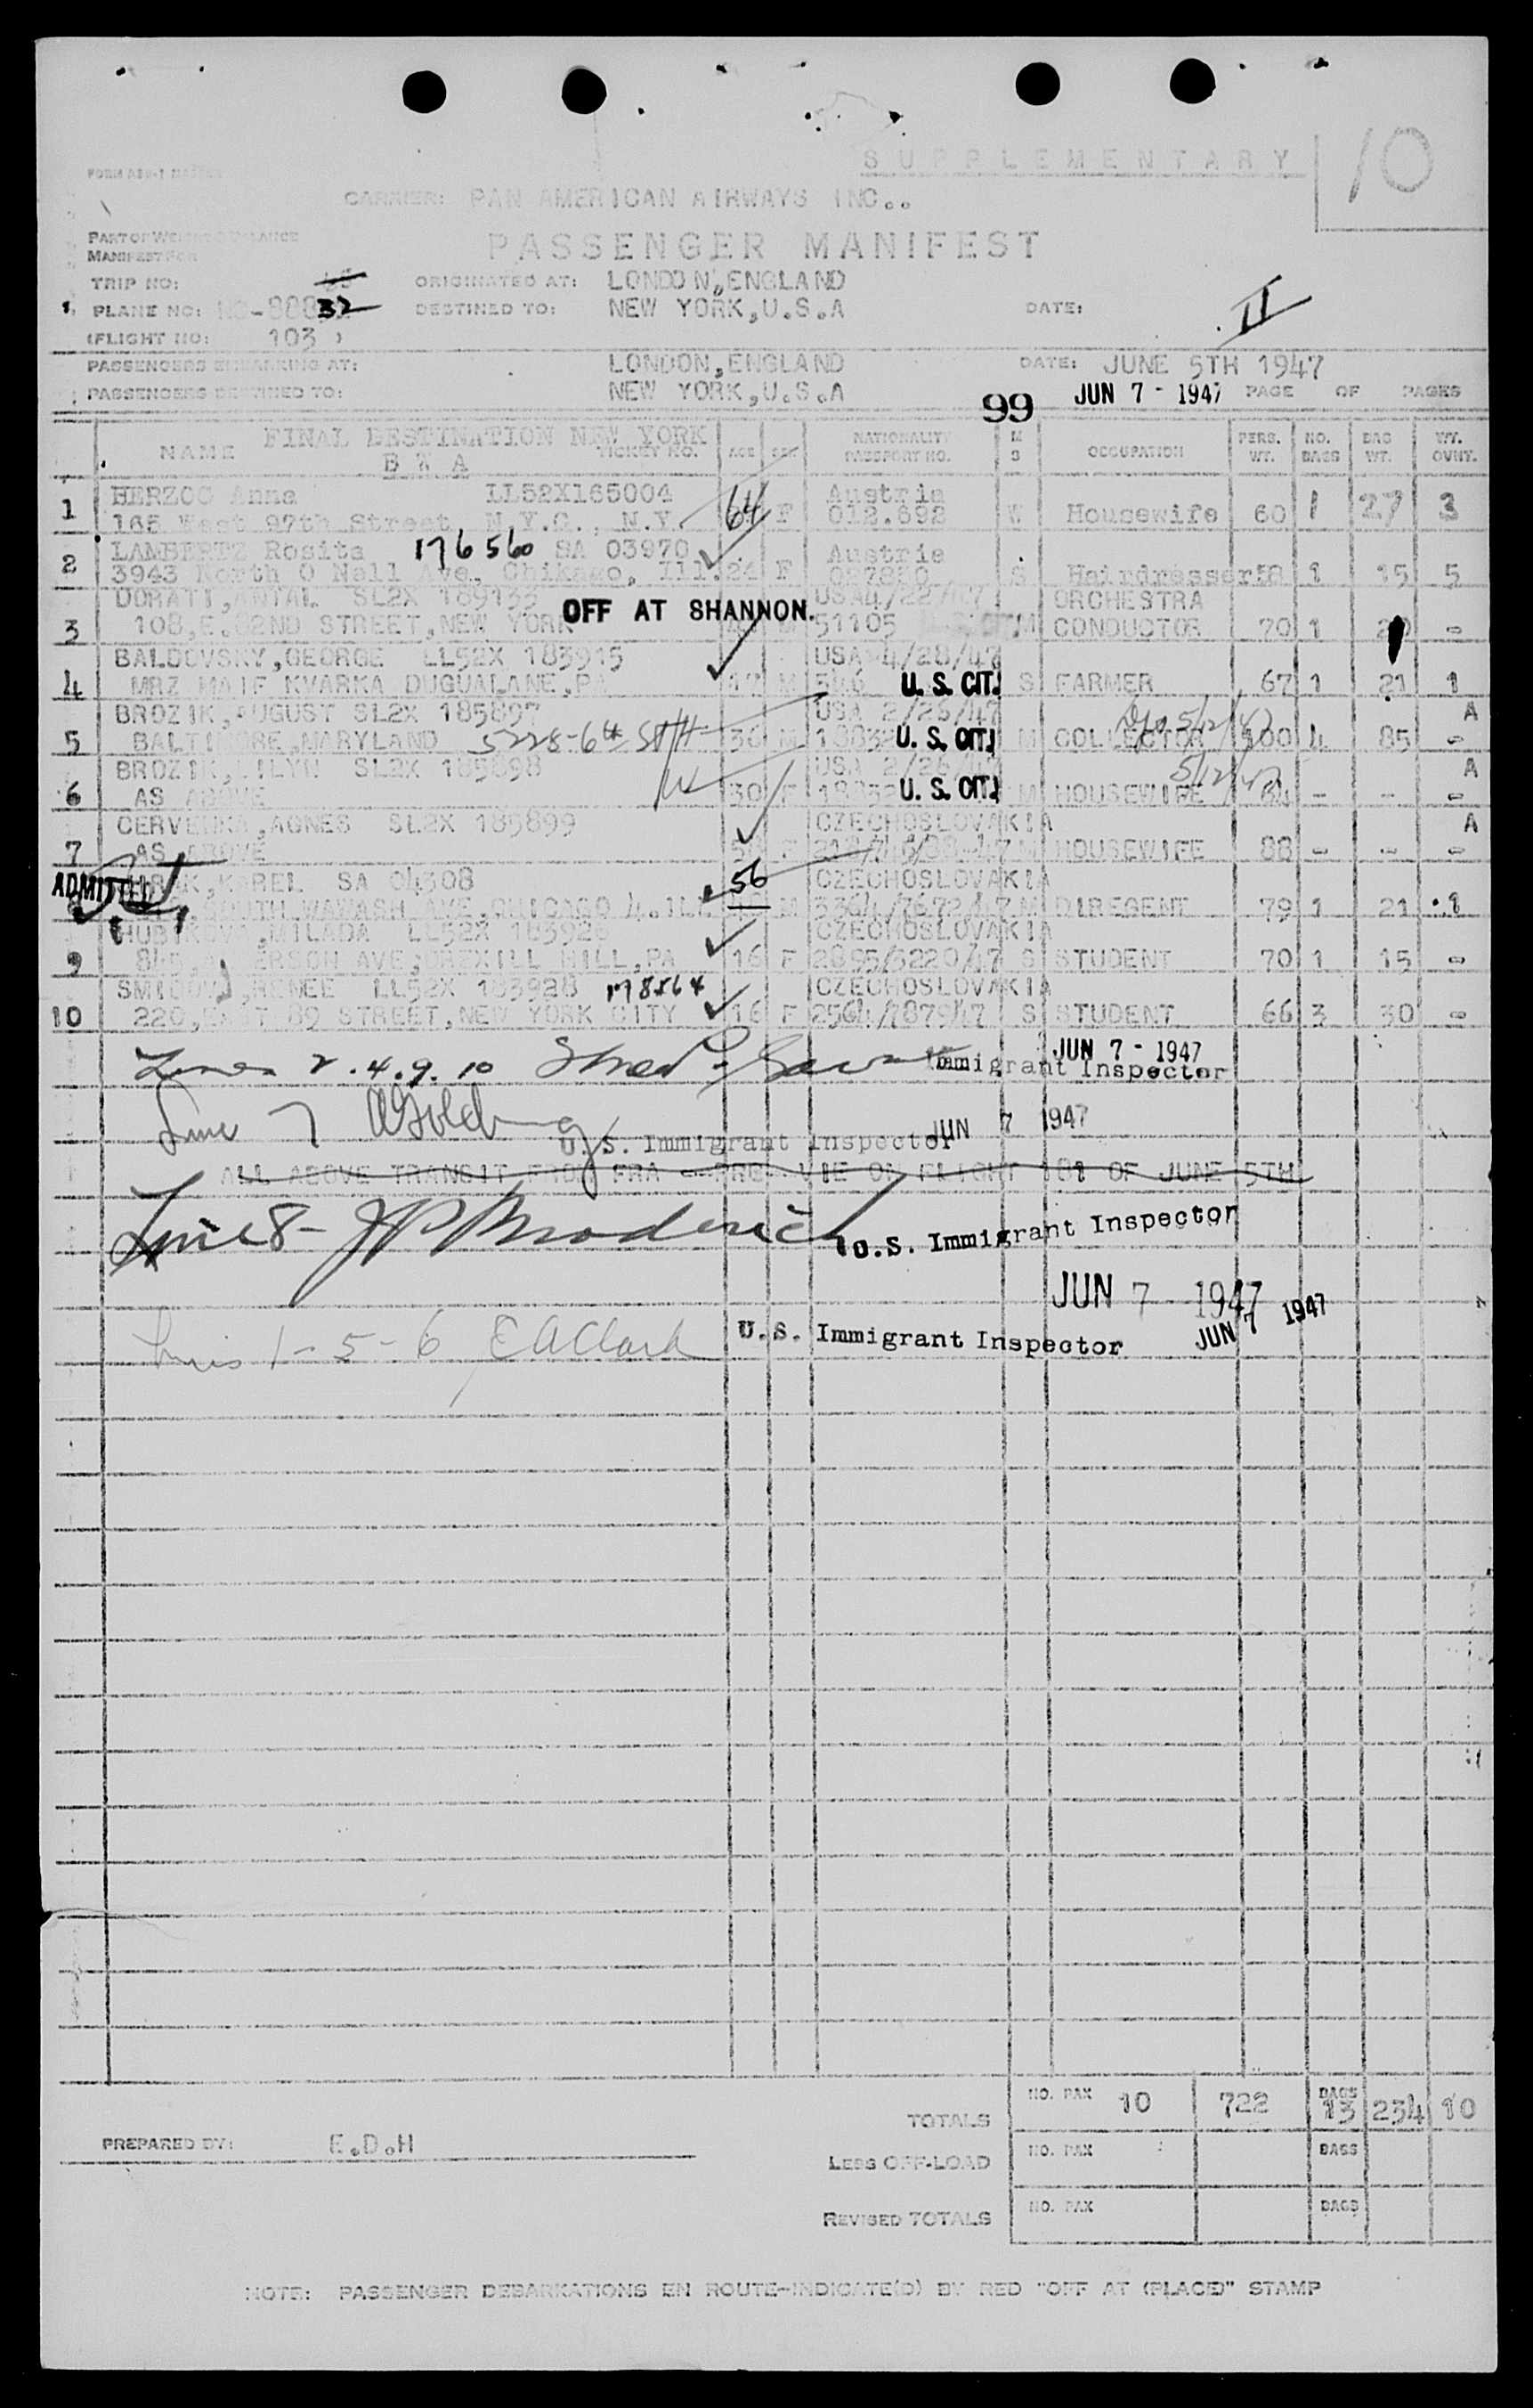 SUPPLEMENTARY
10
CARRIER: PAN AMERICAN AIRWAYS INC..
PASSENGER MANIFEST
TRIP NO:
ORIGINATED AT: LONDON, ENGLAND
PLANE NO: 32
DESTINED TO: NEW YORK, U.S.A
DATE: II
(FLIGHT NO: 103 )
PASSENGERS EMBARKING AT: LONDON, ENGLAND
DATE: JUNE 5TH 1947
PASSENGERS DESTINED TO: NEW YORK, U.S.A
99 JUN 7 - 1947 PAGE OF PAGES
FINAL DESTINATION NEW YORK
NAME B W A TICKET NO. AGE SEX NATIONALITY PASSPORT NO. M S OCCUPATION PERS. WT. NO. BAGS BAG WT. WT. OVHT.
HERZOG Anna LL52X165004 Austria
1 165 West 97th Street, N.Y.C., N.Y. 64 F 012.692 W Housewife 60 1 27 3
LAMBERTZ Rosita 176560 SA 03970 Austria
2 3943 North O Nell Ave, Chikago, Ill. 24 F S Hairdresser 58 1 15 5
DORATI, ANTAL SL2X 189133 OFF AT SHANNON. USA 4/22/47 ORCHESTRA
3 108, E. 82ND STREET, NEW YORK 51105 M CONDUCTOR 70 1 20 -
BALDOVSKY, GEORGE LL52X 183915 USA 4/28/47
4 MRZ KVARKA DUGUALANE, PA 17 M 546 U. S. CIT. S FARMER 67 1 21 1
BROZIK, AUGUST SL2X 185897 USA 2/26/47 A
5 BALTIMORE, MARYLAND 5228-6th St 36 M U. S. CIT. M COLLECTOR 5/12/47 100 4 85 -
BROZIK, LILYN SL2X 185898 USA 2/26/47 5/12/47 A
6 AS ABOVE 30 F U. S. CIT. M HOUSEWIFE 64 - - -
CERVENKA, AGNES SL2X 185899 CZECHOSLOVAKIA A
7 AS ABOVE F M HOUSEWIFE 88 - - -
ADMITTED KAREL SA 04308 56 CZECHOSLOVAKIA
SOUTH WAWASH AVE, CHICAGO 4. ILL M 3364/7672/47 M DIREGENT 79 1 21 1
MILADA LL52X 183926 CZECHOSLOVAKIA
9 AVE, DREXILL HILL, PA 16 F 2895/3220/47 S STUDENT 70 1 15 -
SMIDOVA, RENEE LL52X 183928 178564 CZECHOSLOVAKIA
10 220, EAST 89 STREET, NEW YORK CITY 16 F 2564/7879/47 S STUDENT 66 3 30 -
Lines 2.4.9.10 Immigrant Inspector JUN 7 - 1947
Line 7 U.S. Immigrant Inspector JUN 7 1947
ALL ABOVE TRANSIT FROM PRA ON FLIGHT 101 OF JUNE 5TH
Line 8 - JP Broderick U.S. Immigrant Inspector
JUN 7 1947
Lines 1-5-6 E A Clark U.S. Immigrant Inspector JUN 7 1947
TOTALS NO. PAX 10 722 BAGS 13 234 10
PREPARED BY: E.D.H
LESS OFF-LOAD NO. PAX BAGS
REVISED TOTALS NO. PAX BAGS
NOTE: PASSENGER DEBARKATIONS EN ROUTE-INDICATE(D) BY RED "OFF AT (PLACE)" STAMP